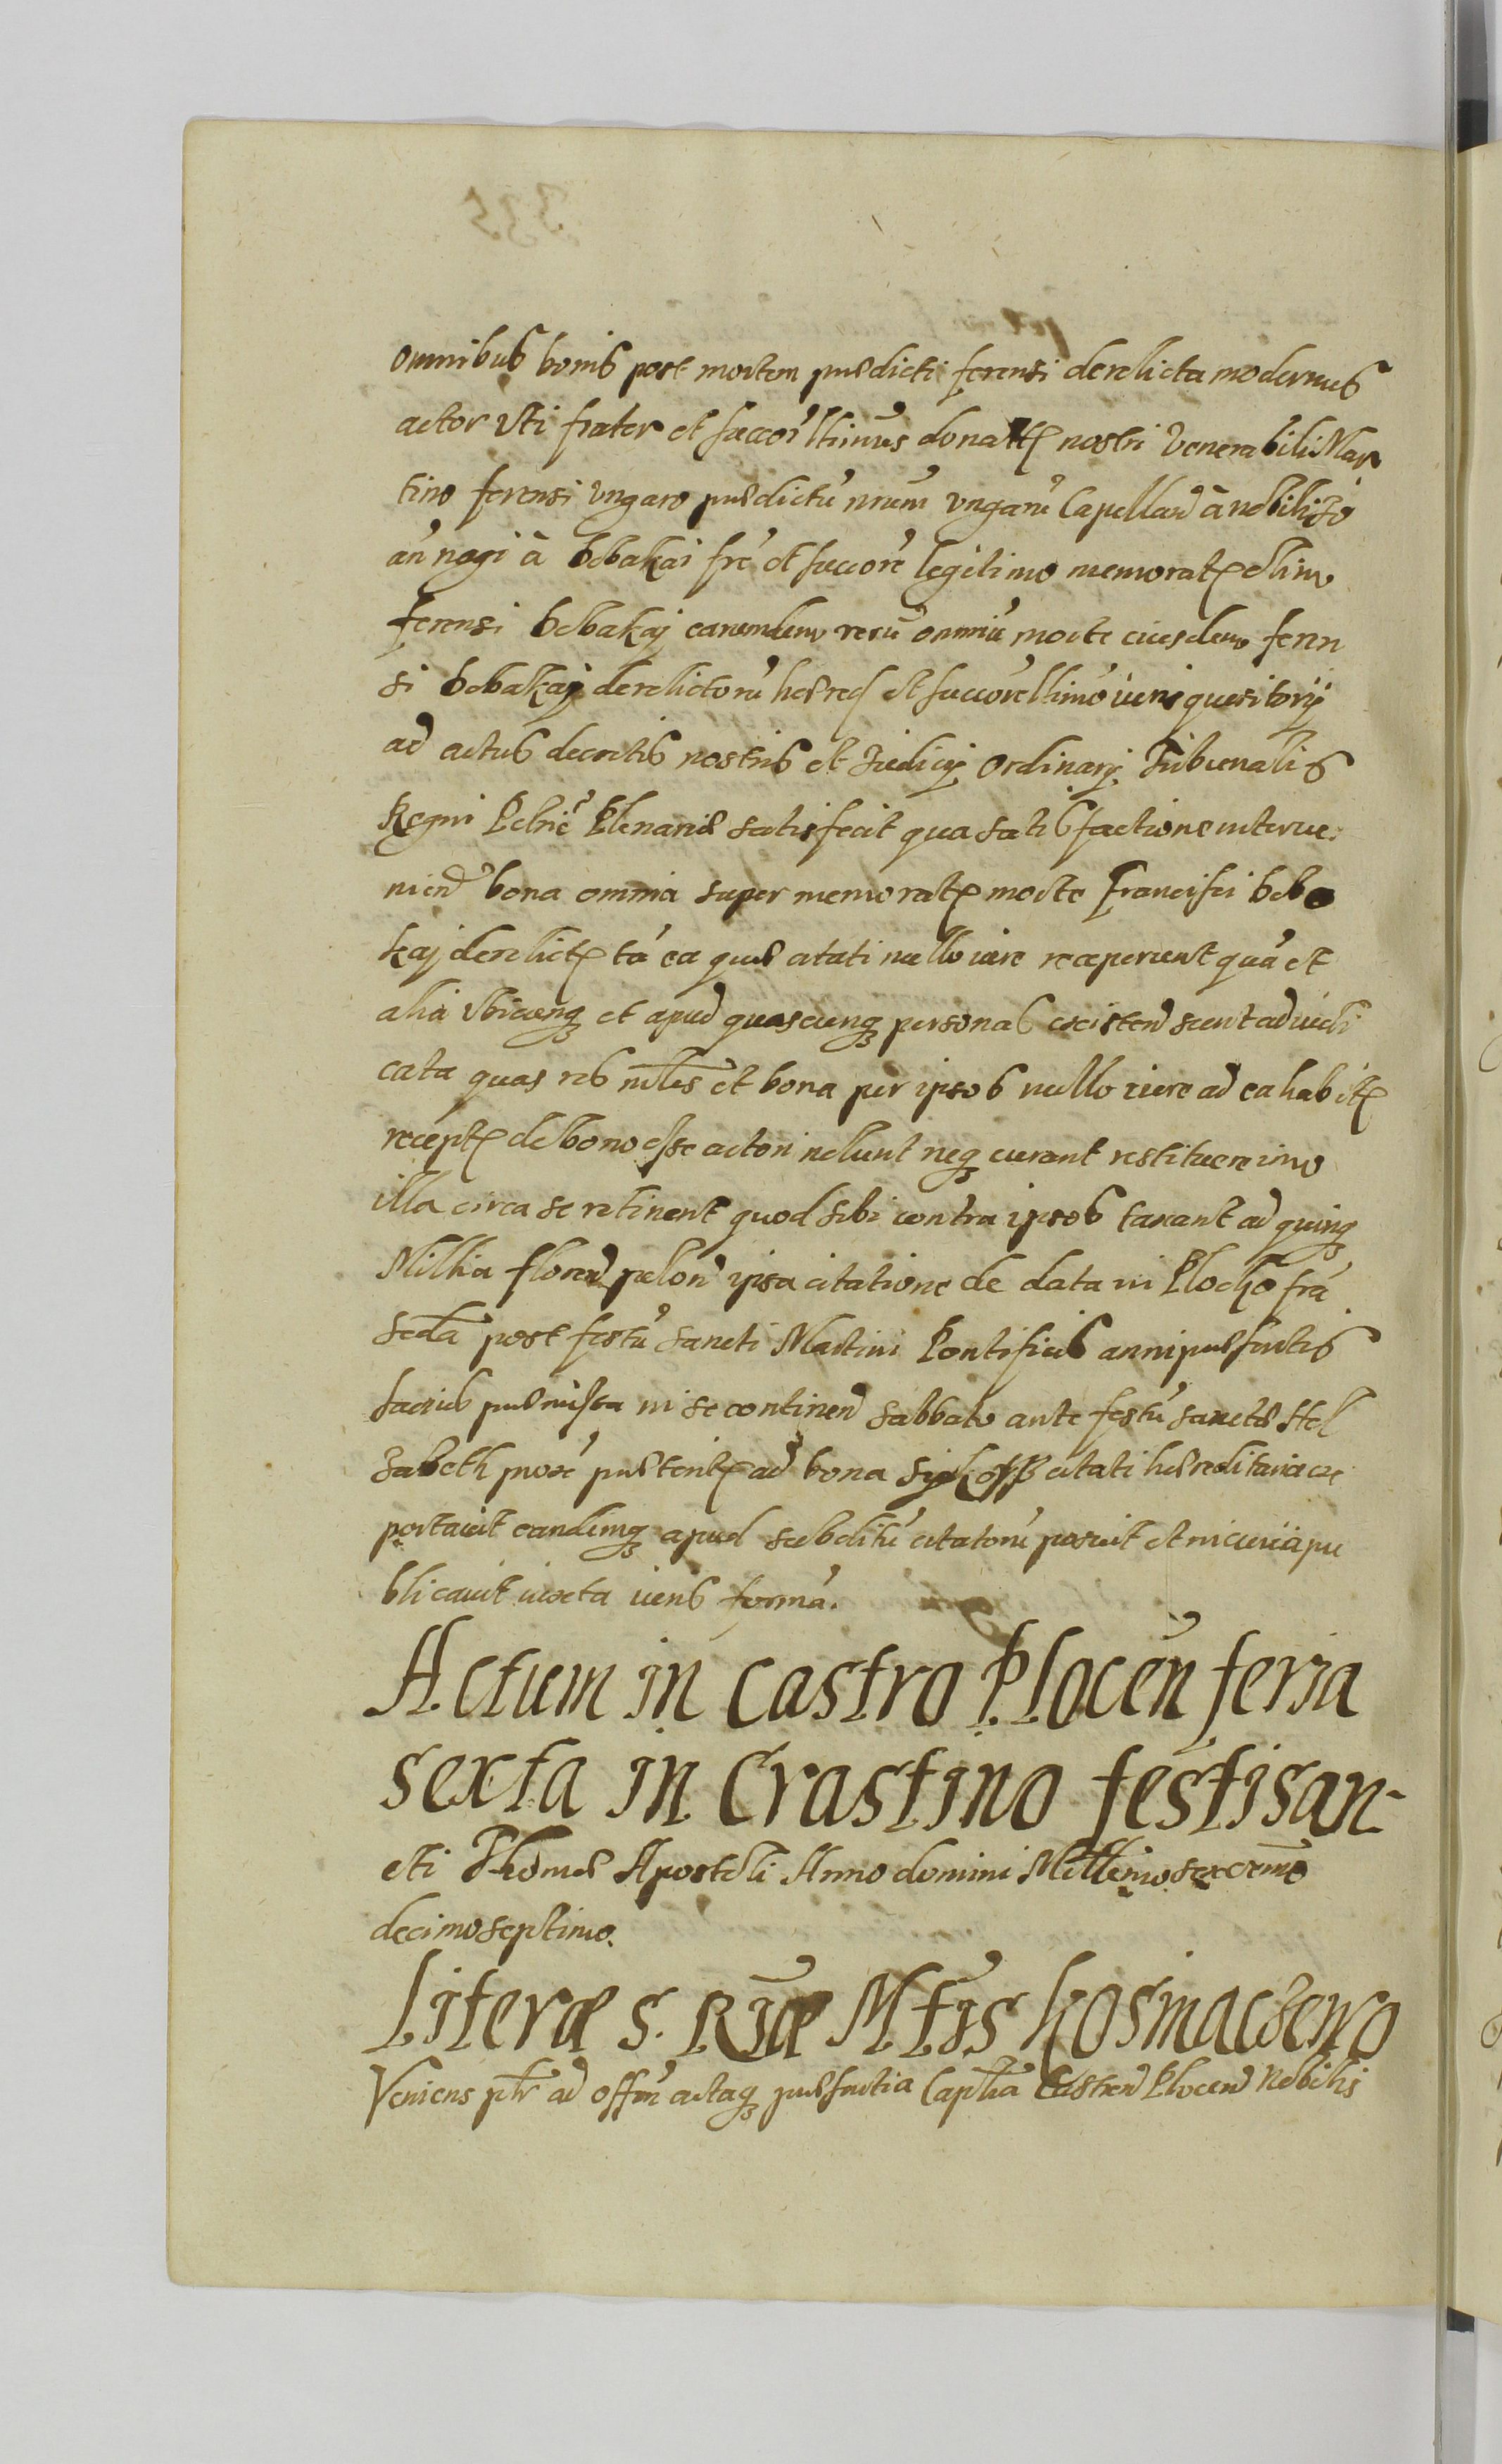 omnibus bonis post mortem praedicti ferensi derelicta modernus
actor Vti frater et succor lttimus donatt nostri Venerabili Mar
tino ferensi Vngaro praedictū nrum vngarū Capellan à nobili Jo
an nagi à bobakai fre et succore legitimo memorat olim
ferensi bobakaj earumdem rerū omniū morte eiusdem feren
si bobakaj derelictorū haered et succore lttimo iuris quesitorij
ad actus decretis nostris et Judicij Ordinarij Tribunalis
Regni Petric Plenarie satisfecit qua satisfactione interue
niend bona omnia super memorat morte Francisci bobo
kaj derelict tā ea quae citati nullo iure receperunt quā et
alia Vbicunq et apud quascunq personas existen sunt adiudi
cata quas res mbles et bona per ipsos nullo iure ad ea habit
recept de bono esse actori nolunt neq curant restituere imo
illa circa se retinent quod sibi contra ipsos taxant ad quinq
Millia floren polon ipsa citatione de data in Plocko fra
scda post festū sancti Martini Pontificis anni praesentis
facius praemissa in se continen sabbato ante festū sanctae Hel
zabeth proxe praeterit ad bona citati haereditaria
portauit eandemq apud subditū citatorū posuit et in curia pu
blicauit iuxta iuris formā.
Actum in Castro Plocen feria
sexta in Crastino festi san-
cti Thomae Apostoli Anno domini Millemo sexcenmo
decimo septimo.
Literae S. Riae Mtis Kosmaczewo
Veniens ptr ad offm actaq praesentia Capitlia Castren Plocen Nobilis